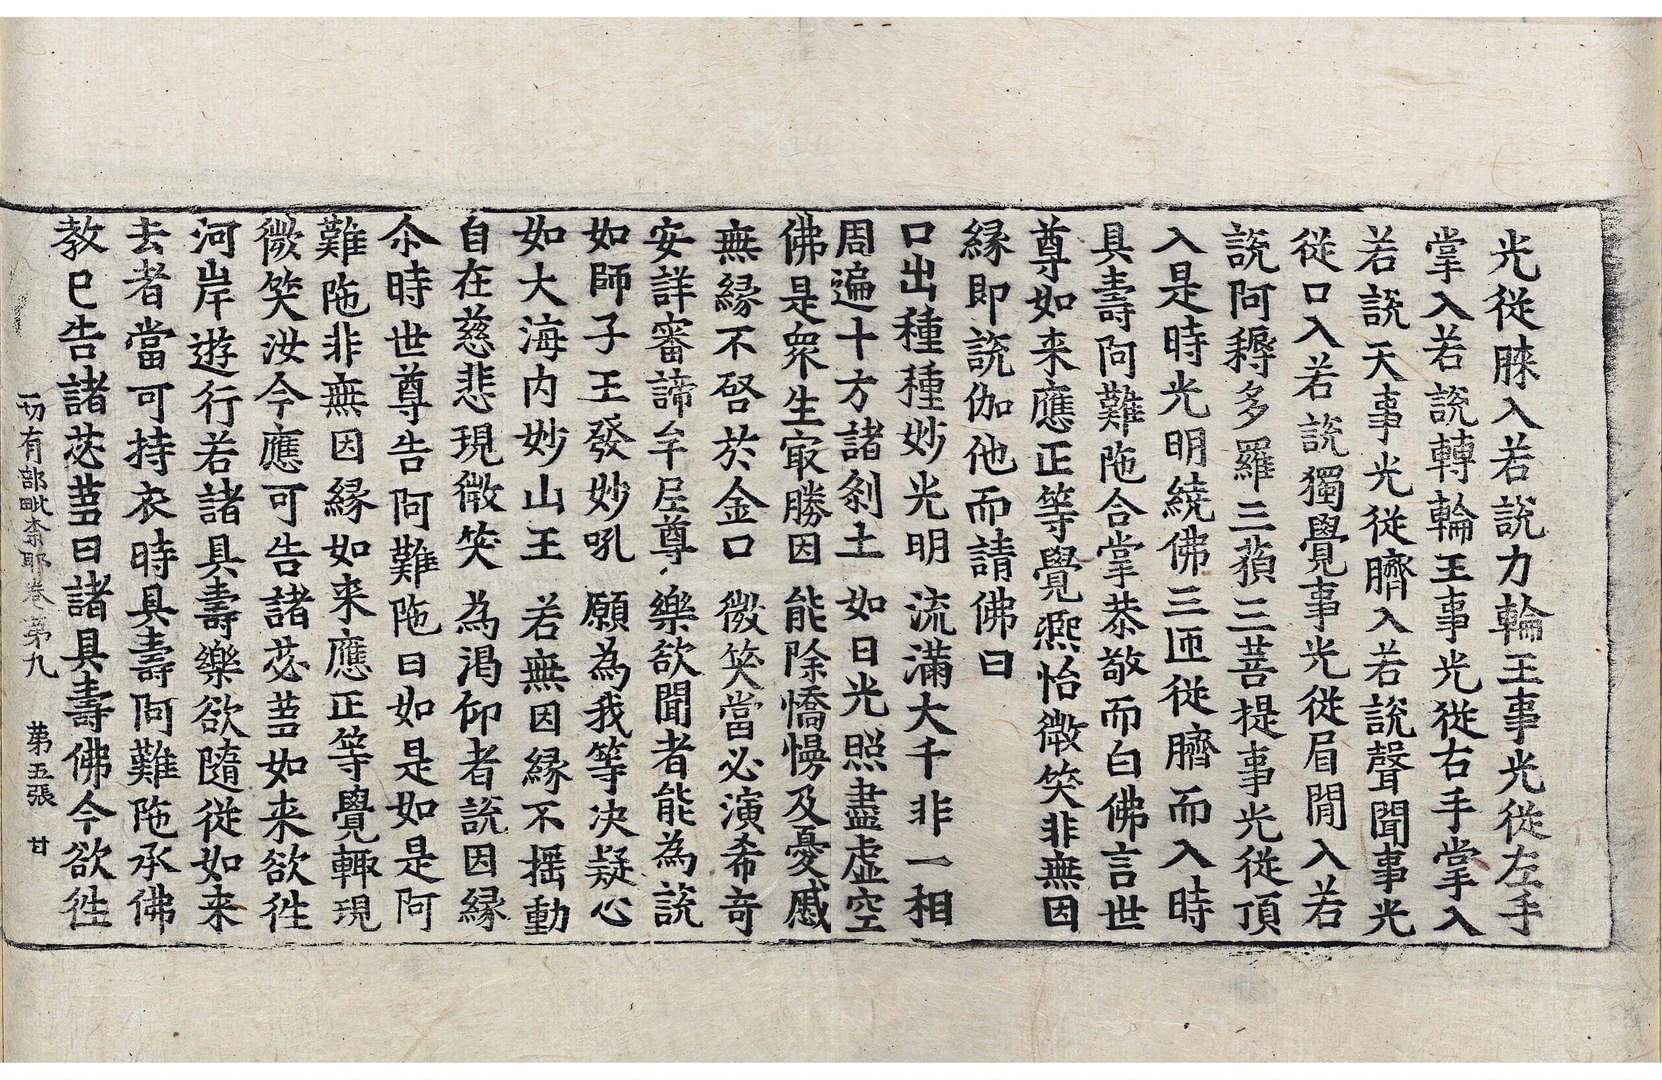 光從膝入若説力輪王事光從左手
掌入若説轉輪王事光從右手掌入
若説天事光從臍入若説聲聞事光
從口入若説獨覺事光從眉閒入若
説阿耨多羅三藐三菩提事光從頂
入是時光明繞佛三匝從臍而入時
具壽阿難陁合掌恭敬而白佛言世
尊如来應正等覺熈怡微笑非無因
縁即説伽他而請佛曰
口出種種妙光明　流滿大千非一相
周遍十方諸刹土　如日光照盡虚空
佛是衆生㝡勝因　能除憍慢及憂慼
無縁不啓於金口　微笑當必演希竒
安詳審諦牟尼尊　樂欲聞者能為説
如師子王發妙吼　願為我等决疑心
如大海内妙山王　若無因縁不摇動
自在慈悲現微笑　為渇仰者説因縁
尒時世尊告阿難陁曰如是如是阿
難陁非無因縁如来應正等覺輙現
微笑汝今應可告諸苾芻如来欲徃
河岸遊行若諸具壽樂欲隨從如来
去者當可持衣時具壽阿難陁承佛
教已告諸苾芻曰諸具壽佛今欲徃
一切有部毗柰耶卷第九　第五張　甘